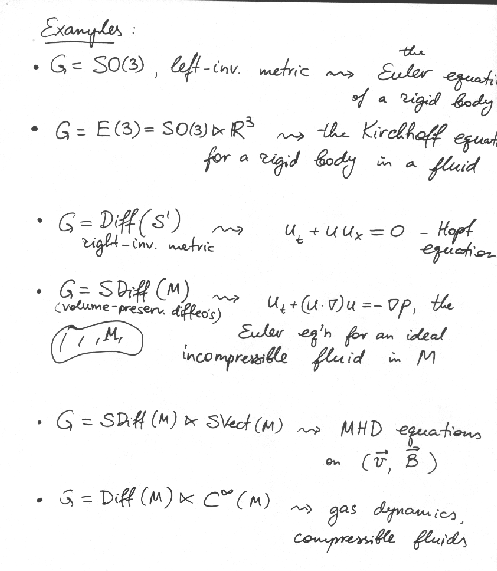 Examples :
• G = SO(3), left-inv. metric ⇝ the Euler equati
of a rigid body
• G = E(3) = SO(3)⋉R³ ⇝ the Kirchhoff equat
for a rigid body in a fluid
• G = Diff(S¹) ⇝ u_t + uu_x = 0 - Hopf
right-inv. metric equation
• G = SDiff(M) ⇝ u_t + (u·∇)u = -∇p, the
(volume-preserv. diffeo's) Euler eq'n for an ideal
M, incompressible fluid in M
• G = SDiff(M) ⋉ SVect(M) ⇝ MHD equations
on (v⃗, B⃗)
• G = Diff(M) ⋉ C^∞(M) ⇝ gas dynamics,
compressible fluids